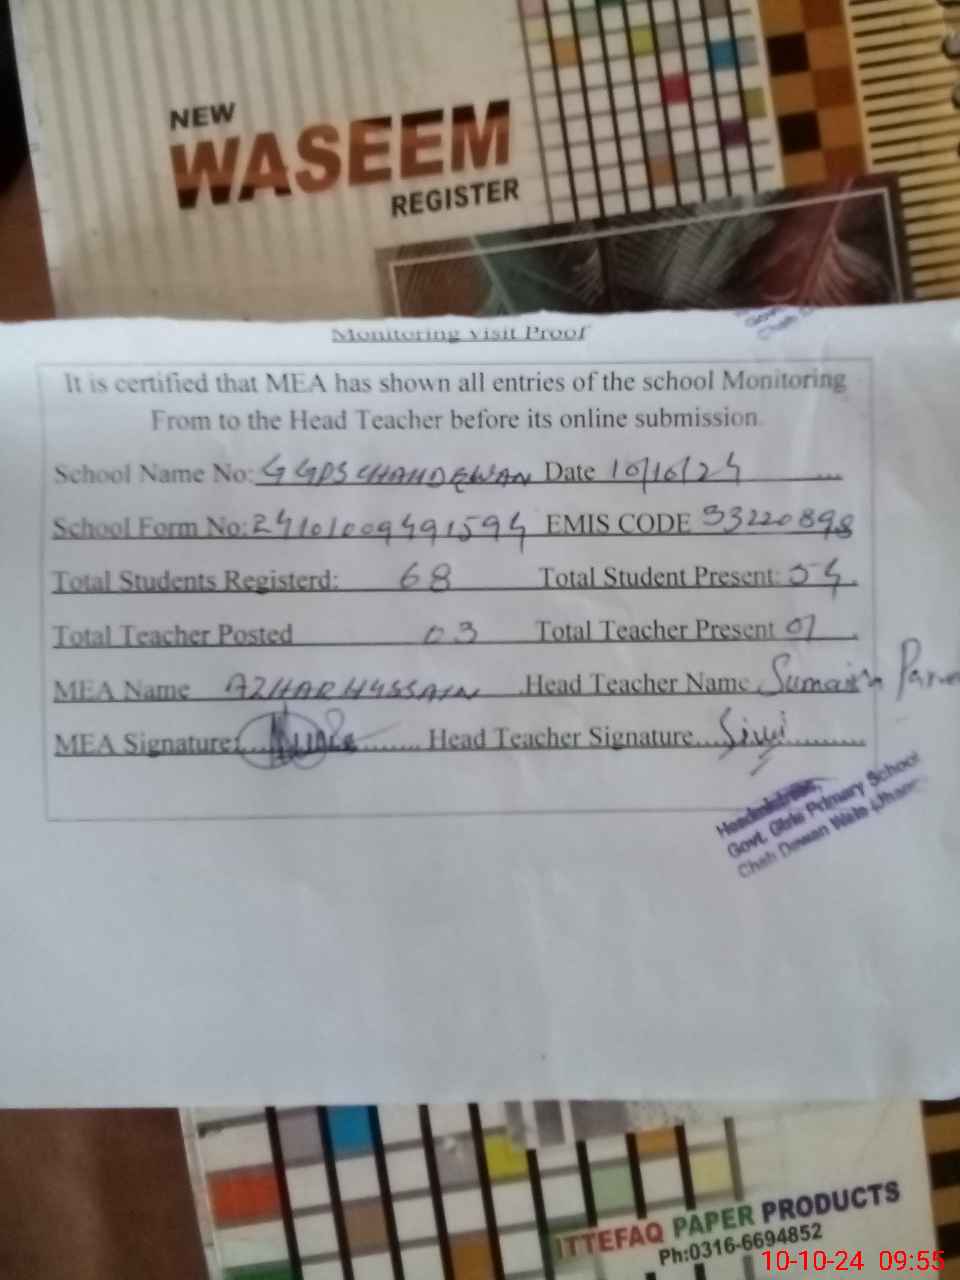 NEW
WASEEM
REGISTER
Monitoring visit Proof
It is certified that MEA has shown all entries of the school Monitoring
From to the Head Teacher before its online submission.
School Name No: GGPS CHAH DEWAN Date 10/10/24
School Form No: 24101009491594 EMIS CODE 33220898
Total Students Registerd: 68 Total Student Present: 54
Total Teacher Posted 03 Total Teacher Present 01
MEA Name AZHAR HUSSAIN Head Teacher Name Sumaira
MEA Signature: Head Teacher Signature
Govt. Girls Primary School
Chah Dewan Wala
ITTEFAQ PAPER PRODUCTS
Ph:0316-6694852
10-10-24 09:55